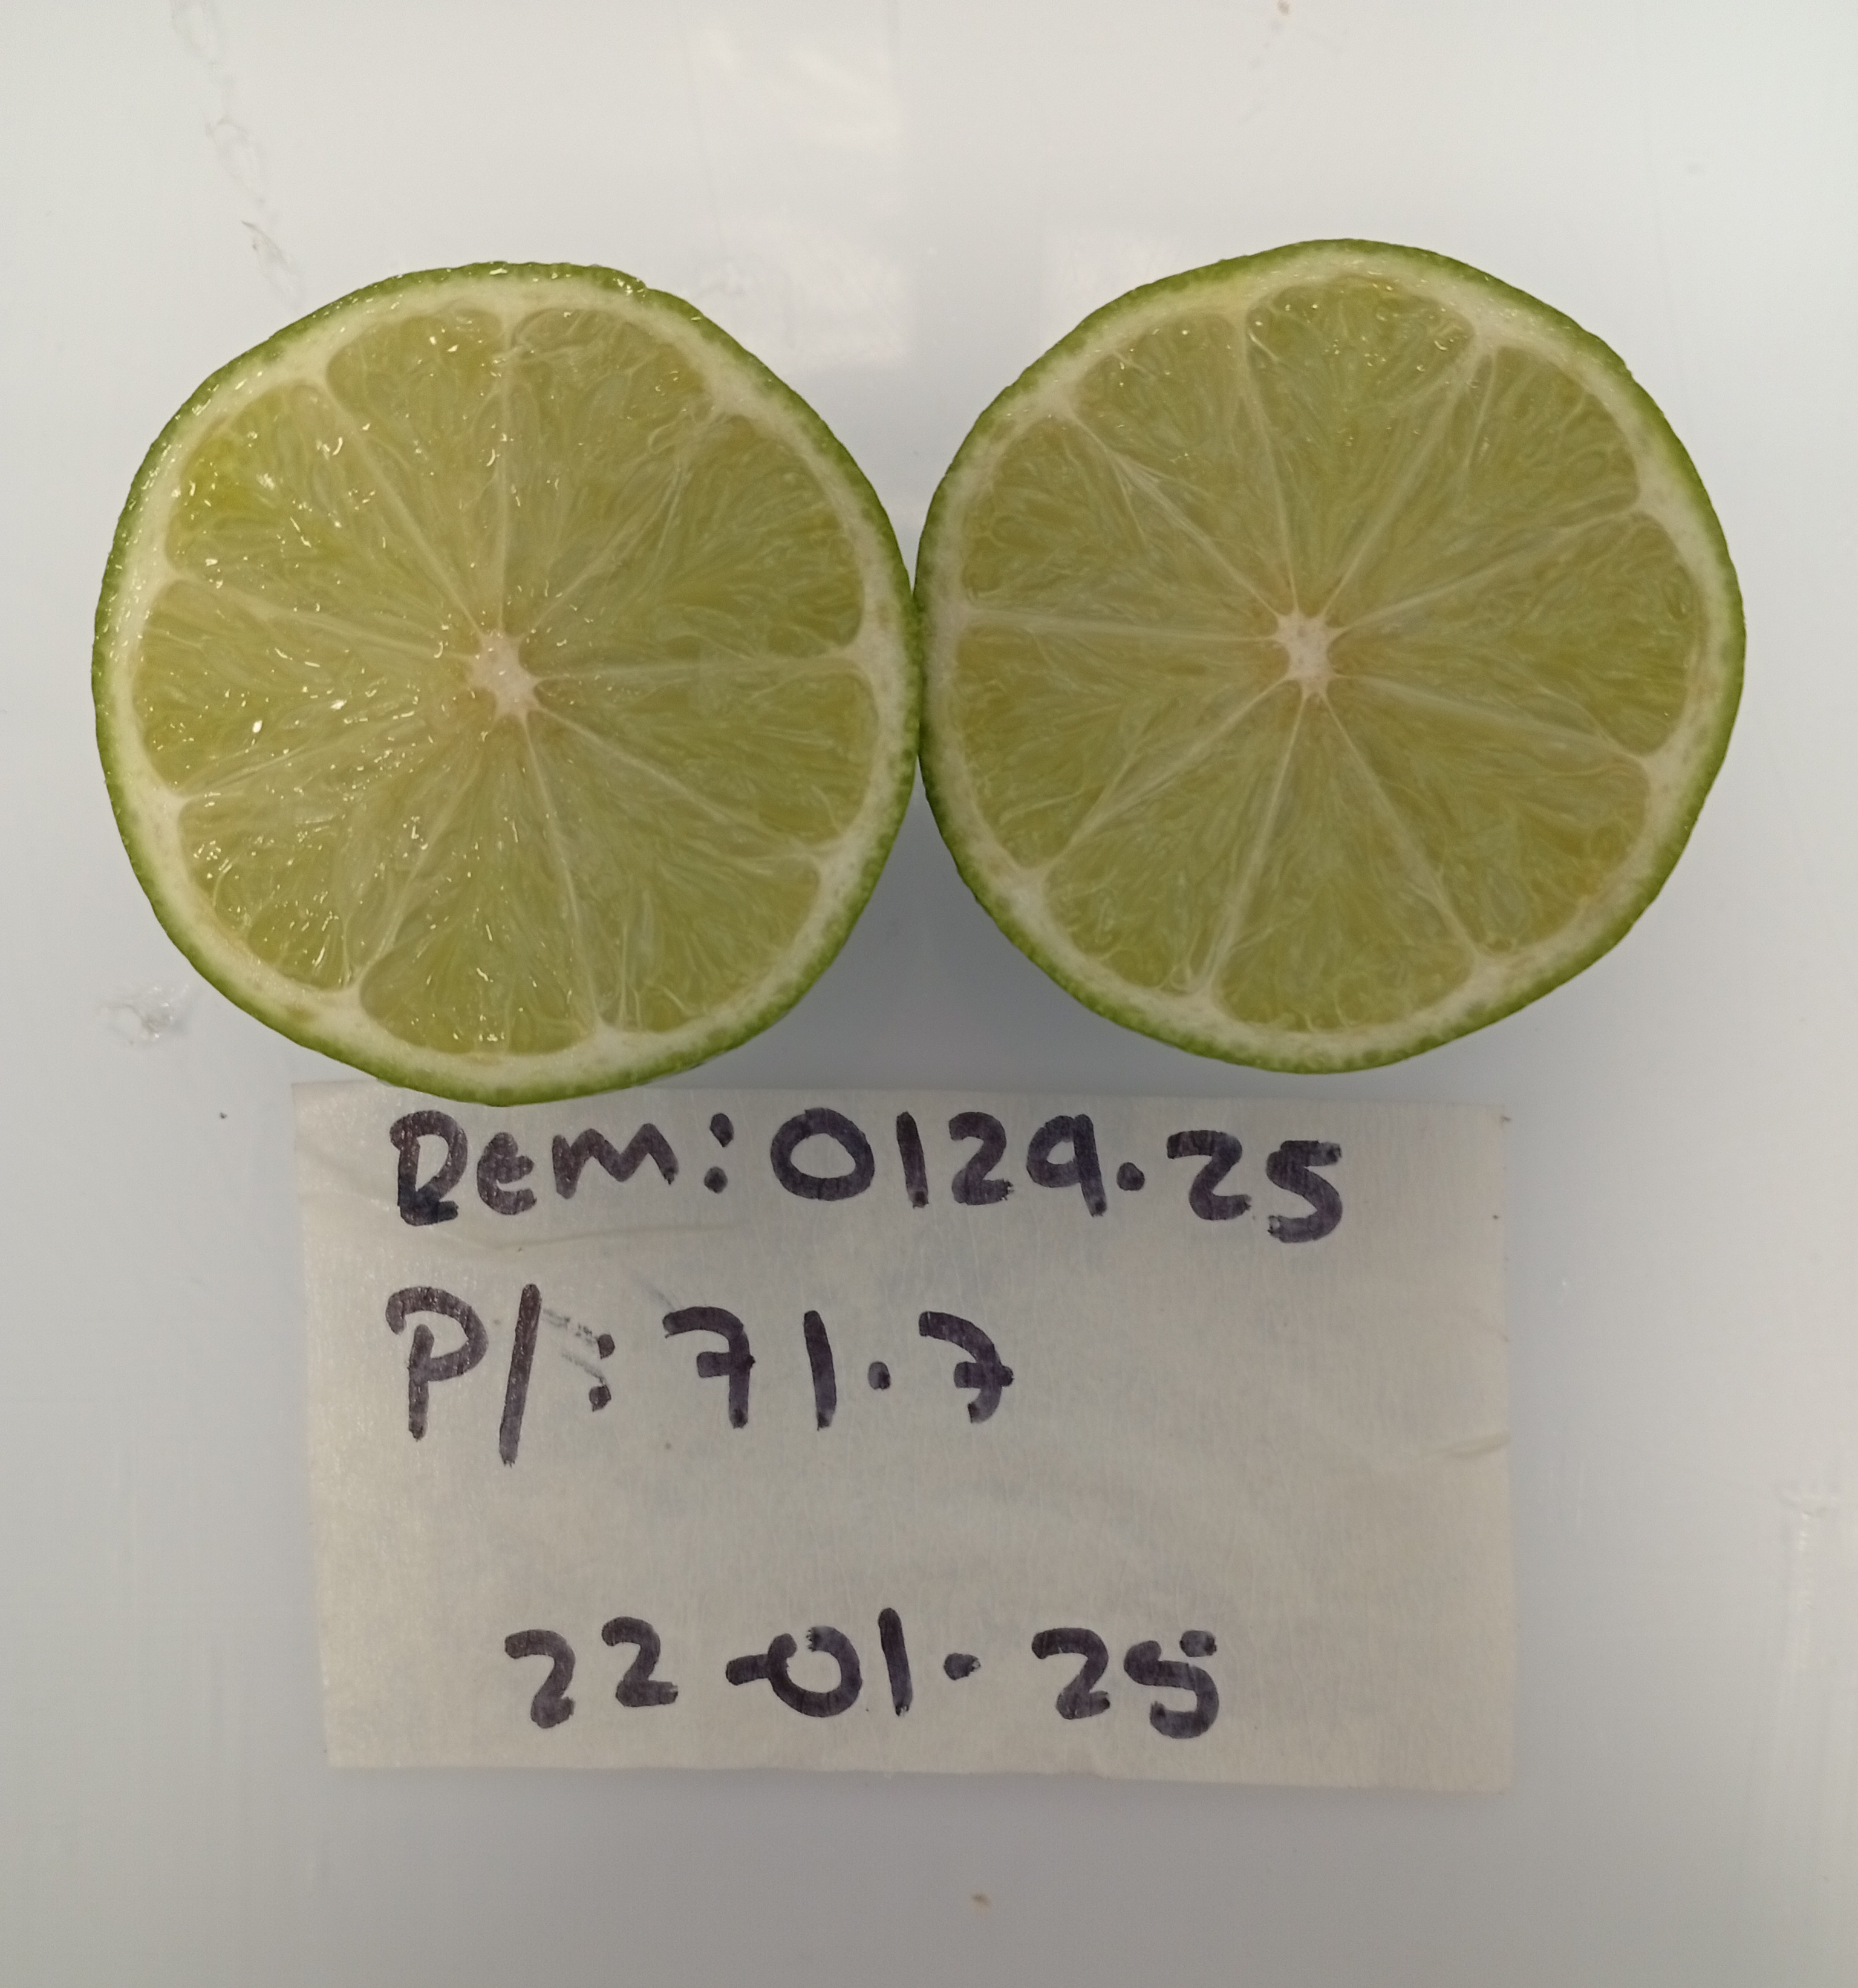 Rem: 0129.25
P/: 71.7
22-01-25